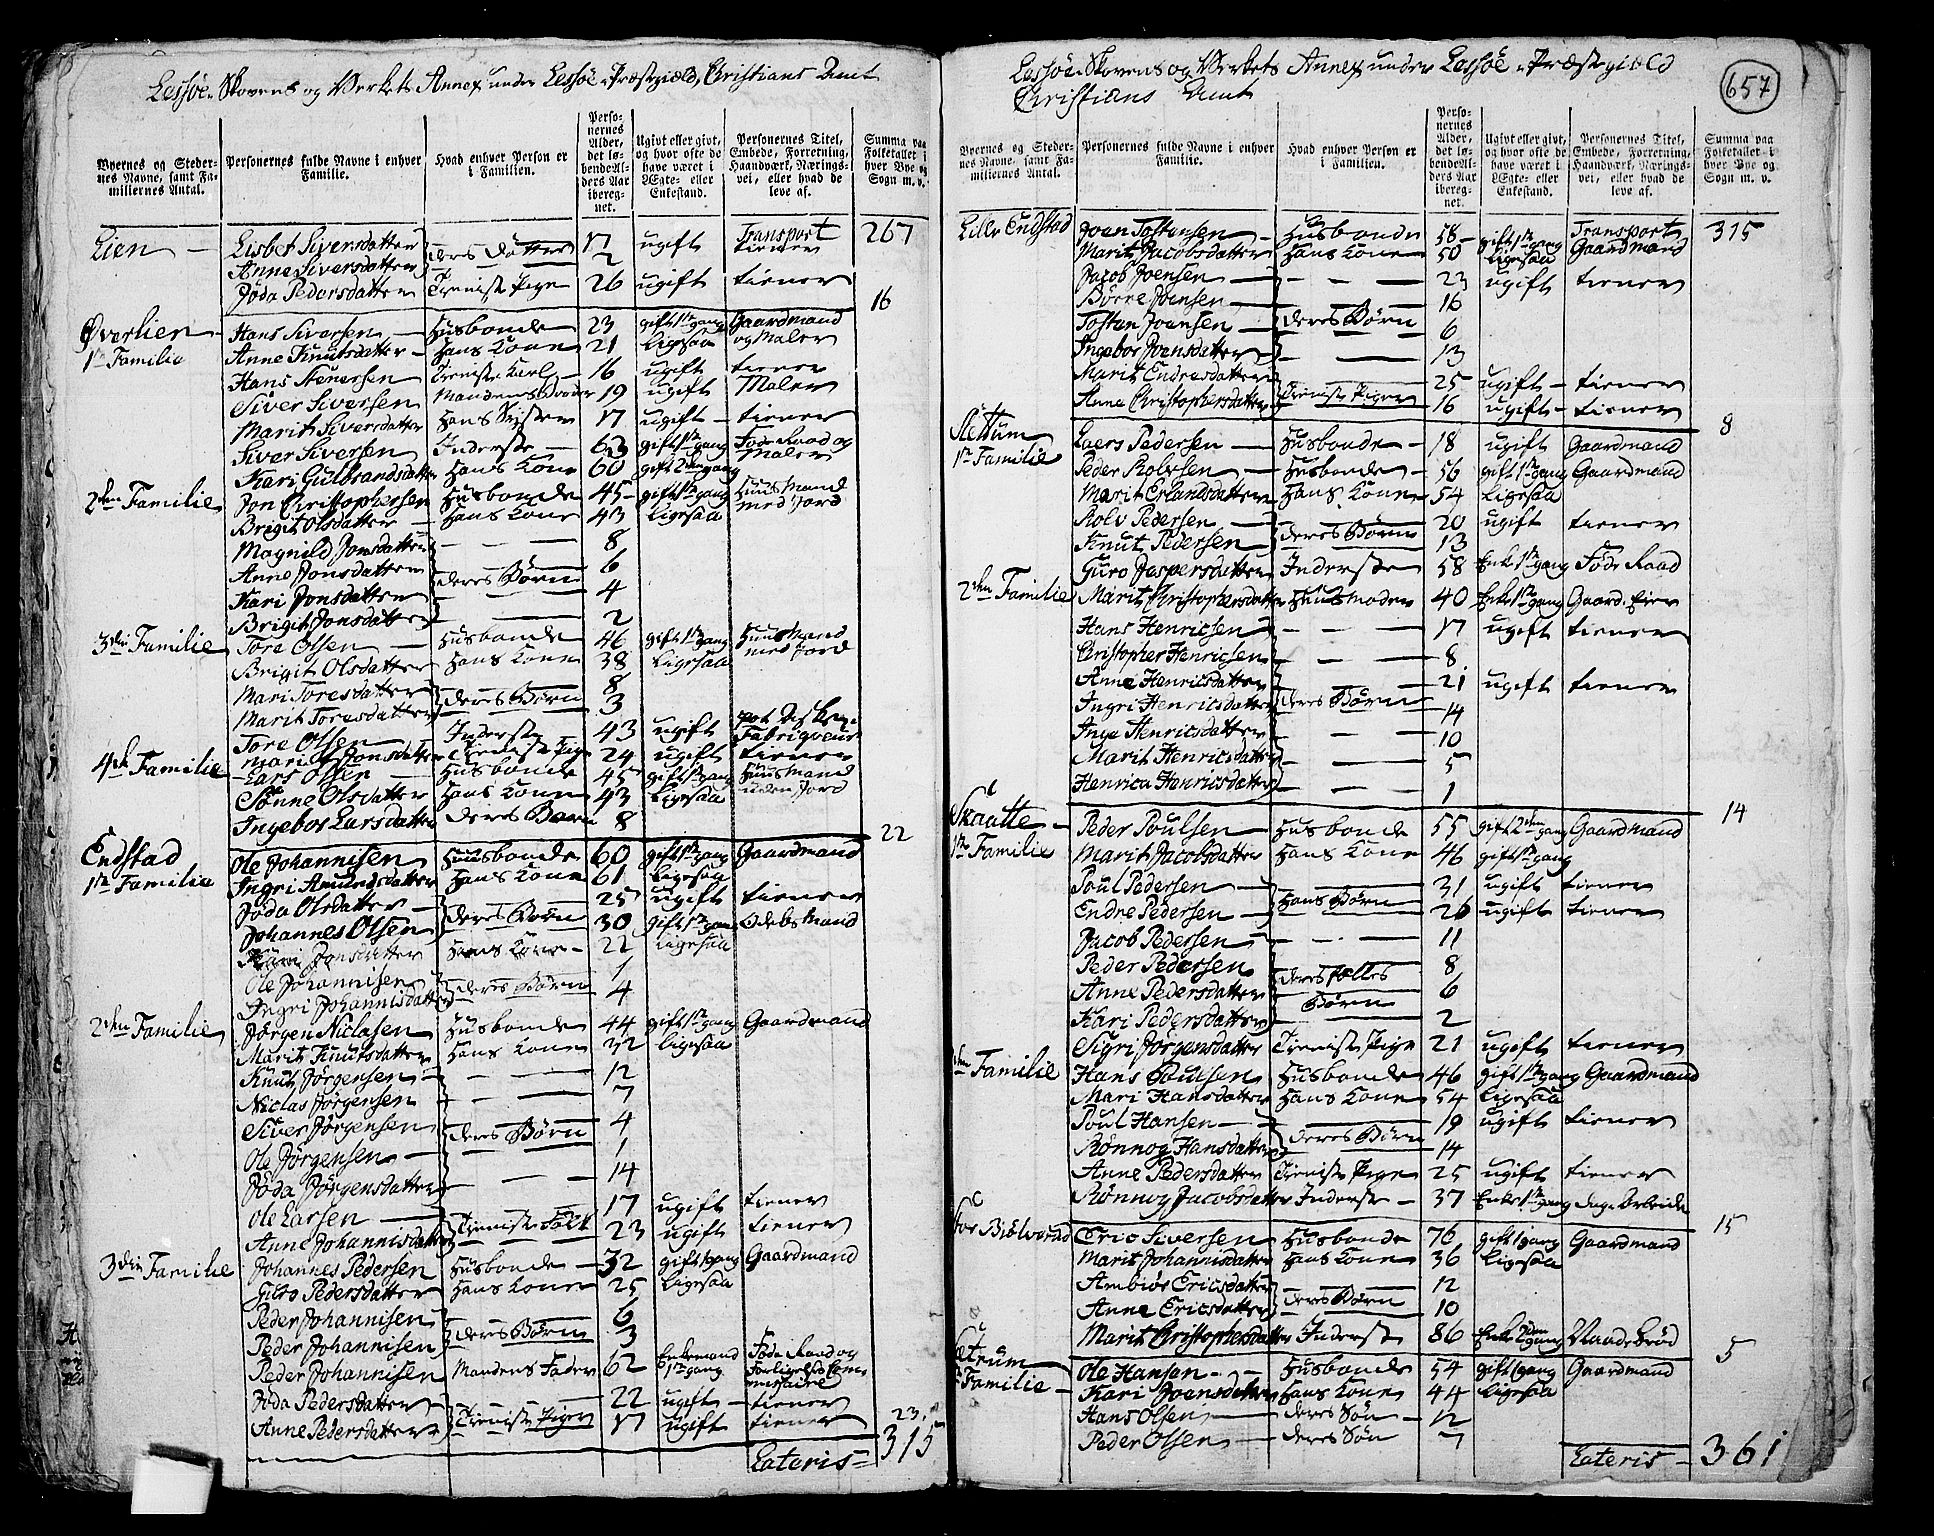 Lessøe Skovens og Verkets Annex under Lessøe Præstegield, Christians Amt
Byernes og Stedernes Navne, samt Familiernes Antal.
Personernes fulde Navne i enhver Familie.
Hvad enhver Person er i Familien.
Personernes Alder, det løbende Alders Aar iberegnet.
Ugivt eller givt, og hvor ofte de have været i Ægte- eller Enkestand.
Personernes Titel, Embede, Forretning, Haandværk, Næringsvei, eller hvad de leve af.
Summa paa Folketallet i hver Bye og Sogn m. v.
Transport 267
Lien - Lisbet Siversdatter deres Døttre 17 ugift tiener
Anne Siversdatter 2
Jøda Pedersdatter Tieniste Pige 26 ugift tiener
16
Øverlien - Hans Siversen Husbonde 23 gift 1te gang Gaardmand
1te Familie Anne Knutsdatter Hans Kone 21 Ligesaa og Maler
Hans Stenersen Tieniste Karl 16 ugift tiener
Siver Siversen Mandens Broder 19 ugift Maler
Marit Siversdatter Hans Syster 17 ugift tiener
Siver Siversen Inderste 63 gift 1te gang Føde Raad og Maler
Kari Gulbrandsdatter Hans Kone 60 gift 2den gang
2den Familie Jon Christophersen Husbonde 45 gift 1te gang Huusmand
Brigit Olsdatter Hans Kone 43 Ligesaa med Jord
Magnild Jonsdatter 8
Anne Jonsdatter deres Børn 6
Kari Jonsdatter 4
Brigit Jonsdatter 2
3die Familie Tore Olsen Husbonde 46 gift 1te gang Huusmand
Brigit Olsdatter Hans Kone 38 Ligesaa med Jord
Mari Toresdatter deres Børn 8
Marit Toresdatter 3
Tore Olsen Inderste 43 ugift Fabriqveur
Mari Jonsdatter Tieniste Pige 24 ugift tiener
4de Familie Lars Olsen Husbonde 45 gift 1te gang Huusmand
Sønne Olsdatter Hans Kone 43 Ligesaa uden Jord
Ingebor Larsdatter deres Barn 8
22
Endstad Ole Johannisen Husbonde 60 gift 1te gang Gaardmand
1te Familie Ingri Amundsdatter Hans Kone 61 Ligesaa
Jøda Olsdatter deres Børn 25 ugift tiener
Johannes Olsen 30 gift 1te gang
Kari Jonsdatter Hans Kone 22 Ligesaa
Ole Johannisen deres Børn 1
Ingri Johannisdatter 4
2den Familie Jørgen Niclasen Husbonde 44 gift 1te gang Gaardmand
Marit Knutsdatter Hans Kone 32 Ligesaa
Knut Jørgensen 12
Niclas Jørgensen 7
Siver Jørgensen deres Børn 4
Ole Jørgensen 1
Jøda Jørgensdatter 14
Ole Larsen Tieniste Folk 17 ugift tiener
Anne Johannisdatter 23 ugift tiener
3die Familie Johannes Pedersen Husbonde 32 gift 1 gang Gaardmand
Pedersdatter Hans Kone 25 Ligesaa
Peder Johannisen deres Børn 6
Peder Johannisen 3
Peder Johannisen Mandens Fader 62 Enkemand 1te gang Føde Raad og
Jøda Pedersdatter Tieniste Piger 22 ugift tiener
Anne Pedersdatter 17 ugift tiener
23
Lateris 315
Lessøe Skovens og Verkets Annex under Lessøe Præstegield
Christians Amt
657
Byernes og Stedernes Navne, samt Familiernes Antal.
Personernes fulde Navne i enhver Familie.
Hvad enhver Person er i Familien.
Personernes Alder, det løbende Alders Aar iberegnet.
Ugivt eller givt, og hvor ofte de have været i Ægte- eller Enkestand.
Personernes Titel, Embede, Forretning, Haandværk, Næringsvei, eller hvad de leve af.
Summa paa Folketallet i hver Bye og Sogn m. v.
Transport 315
Lille Endstad Joen Tostensen Husbonde 58 gift 1te gang Gaardmand
Marit Jacobsdatter Hans Kone 50 Ligesaa
Jacob Joensen 23 ugift tiener
Børre Joensen 16
Tostan Joensen deres Børn 6
Ingebor Joensdatter 13
Marit Endresdatter Tieniste Piger 25 ugift tiener
Anne Christophersdatter 16 ugift tiener
8
Slettum Laers Pedersen Husbonde 18 ugift Gaardmand
1te Familie Peder Rolvsen Husbonde 56 gift 1te gang Gaardmand
Marit Erlandsdatter Hans Kone 54 Ligesaa
Rolv Pedersen deres Børn 20 ugift tiener
Knut Pedersen 13
Guro Jaspersdatter Inderste 58 Enke 1te gang Føde Raad
2den Familie Marit Christophersdatter Huusmoder 40 Enke 1te gang Gaard Eier
Hans Henricsen 17 ugift tiener
Christopher Henricsen 8
Anne Henricsdatter 21 ugift tiener
Ingri Henricsdatter deres Børn 14
Inge Henricsdatter 10
Marit Henricsdatter 5
Henrica Henricsdatter 1
14
Skøtte Peder Poulsen Husbonde 55 gift 2den gang Gaardmand
1te Familie Marit Jacobsdatter Hans Kone 46 gift 1te gang
Poul Pedersen Hans Børn 31 ugift tiener
Endre Pedersen 26 ugift tiener
Jacob Pedersen 11
Peder Pedersen deres fælles 8
Anne Pedersdatter Børn 6
Kari Pedersdatter 2
Sigri Jørgensdatter Tieniste Pige 21 ugift tiener
den Familie Hans Poulsen Husbonde 46 gift 1te gang Gaardmand
Mari Hansdatter Hans Kone 54 Ligesaa
Poul Hansen deres Børn 19 ugift tiener
Rønnog Hansdatter 14
Anne Pedersdatter Tieniste Pige 25 ugift tiener
Rønnog Jacobsdatter Inderste 37 Enke 1te gang Dag Arbeide
15
Eric Siversen Husbonde 76 gift 1 gang Gaardmand
Marit Johannisdatter Hans Kone 36 Ligesaa
Ambiør Ericsdatter deres Børn 12
Anne Ericsdatter 10
Marit Christophersdatter Inderste 86 Enke 2den gang Naade Brød
5
Ole Hansen Husbonde 54 gift 1 gang Gaardmand
Familie Kari Joensdatter Hans Kone 44 Ligesaa
Hans Olsen deres Søn 12
Peder Olsen deres Søn 7
Lateris 361